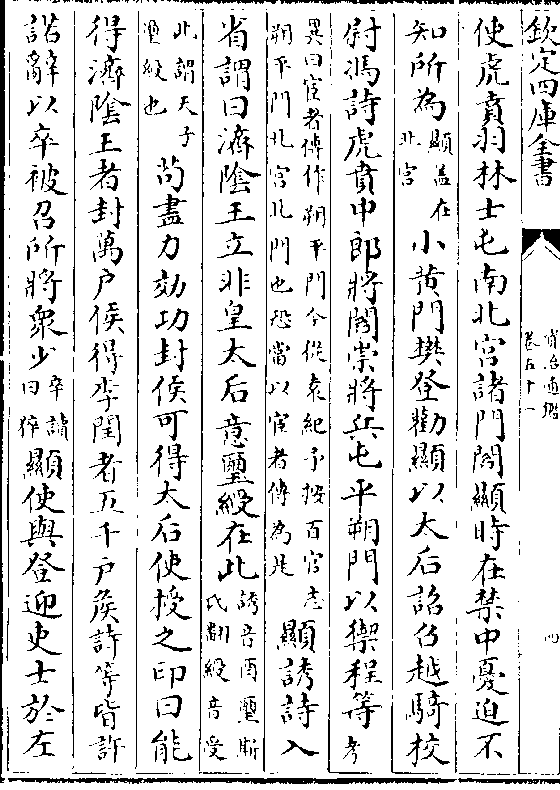 欽定四庫全書
資治通鑑
卷五十一
使虎賁羽林士屯南北宫諸門閻顯時在禁中憂迫不
知所為顯蓋在北宫小黄門樊登勸顯以太后詔召越騎校
尉馮詩虎賁中郎將閻崇將兵屯平朔門以禦程等考
異曰宦者傳作朔平門今從袁紀予按百官志朔平門北宫北門也恐當以宦者傳為是顯誘詩入
省謂曰濟隂王立非皇太后意璽綬在此誘音酉璽斯氏翻綬音受
此謂天子璽綬也茍盡力效功封侯可得太后使授之印曰能
得濟隂王者封萬户侯得李閏者五千户侯詩等皆許
諾辭以卒被召所將衆少卒讀曰猝顯使與登迎吏士於左